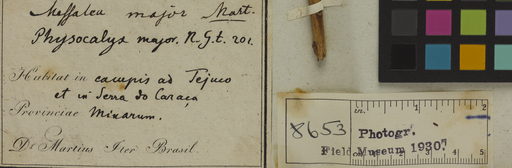 Meffalea major Mart.
Physocalyx major. N.G.t. 201.
Habitat in campis ad Tejuco
et in Serra do Caraça
Provinciae Minarum.
Dr. Martius Iter Brasil.
in. 1 2
8653 Photogr.
Field Museum 1930.
4 5